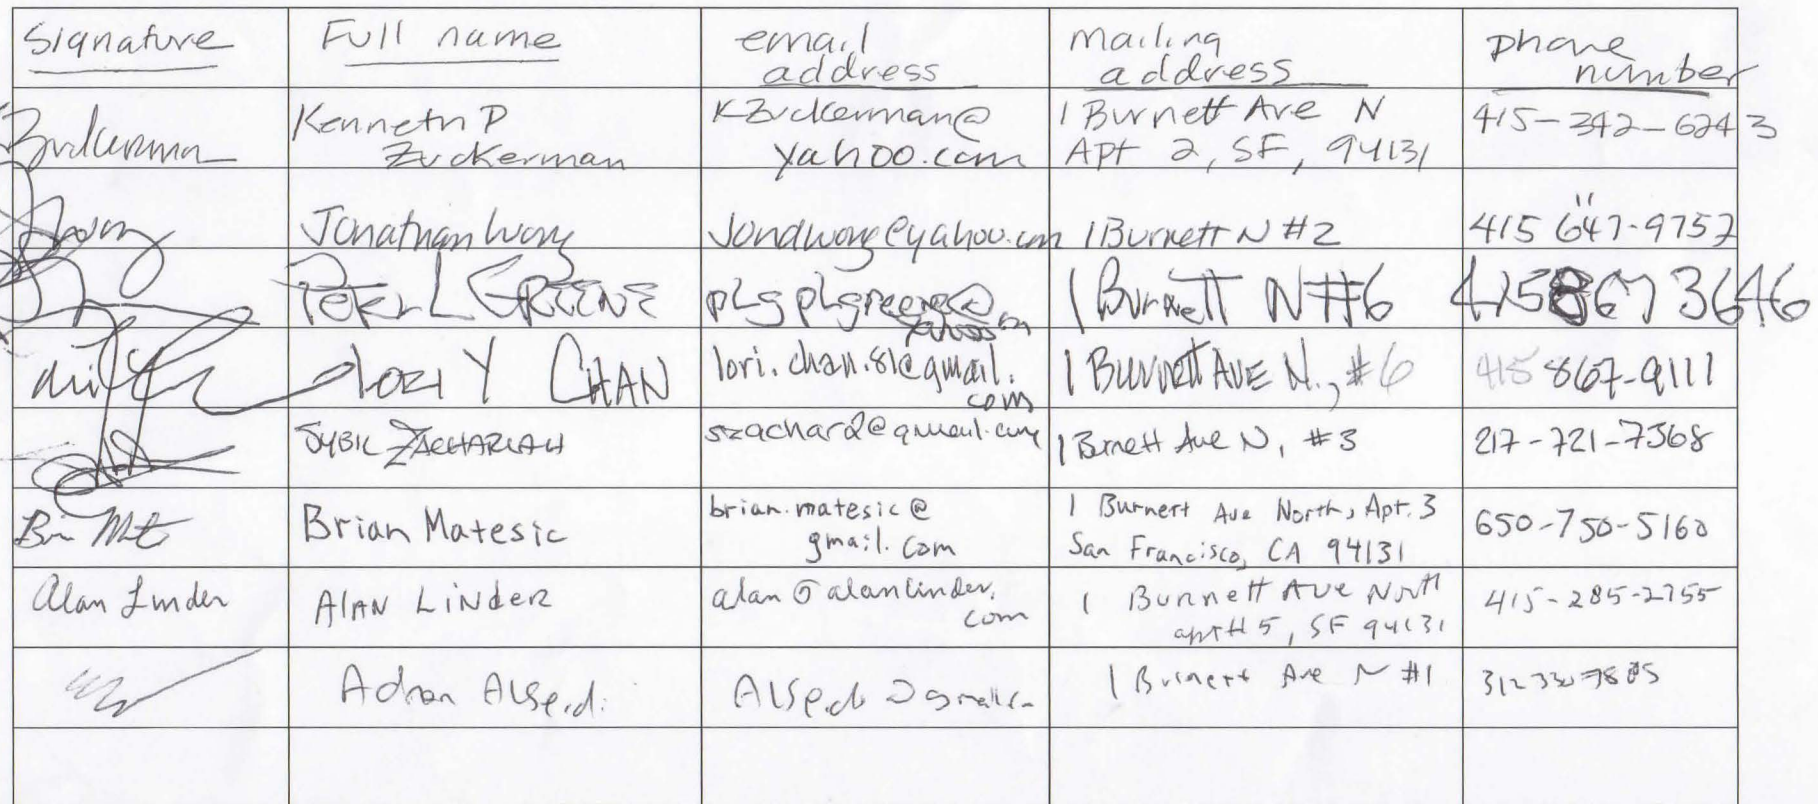 Signature Full name email address mailing address phone number
Zuckerman Kenneth P Zuckerman KZuckerman@yahoo.com 1 Burnett Ave N Apt 2, SF, 94131 415-342-6243
Jonathan Wong Jondwong@yahoo.com 1 Burnett N #2 415 647-9757
Peter L GREENE 1 Burnett N #6 415 867 3646
LORI Y CHAN lori.chan.81@gmail.com 1 Burnett AVE N., #6 415 867-9111
SYBIL ZACHARIAH szachar2@gmail.com 1 Burnett Ave N, #3 217-721-7368
Brian Matesic brian.matesic@gmail.com 1 Burnett Ave North, Apt. 3 San Francisco, CA 94131 650-750-5160
Alan Linder ALAN LINDER alan@alanlinder.com 1 Burnett Ave North apt # 5, SF 94131 415-285-2755
1 Burnett Ave N #1